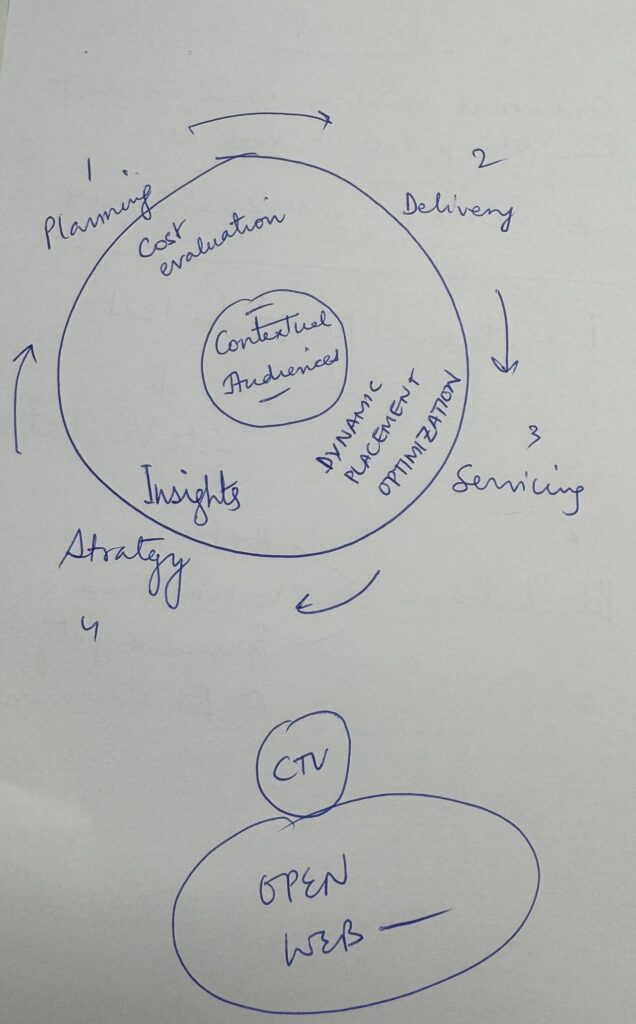 1
Planning
2
Delivery
Cost
evaluation
Contextual
Audiences
DYNAMIC
PLACEMENT
OPTIMIZATION
3
Servicing
Insights
Stratgy
4
CTV
OPEN
WEB